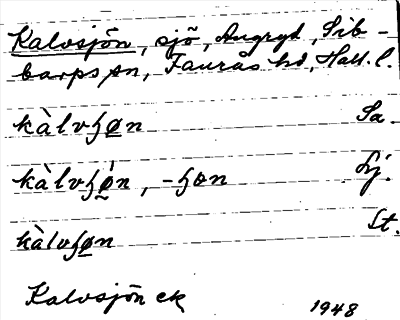 Kalvsjön, sjö, Angryd, Sib-
barps sn, Faurås hd, Hall. l.
kàlvʃø̲n Sa.
kàlvʃǿ̲n, -ʃɵn Lj.
kàlvʃø̲n St.
Kalvsjön ek 1948